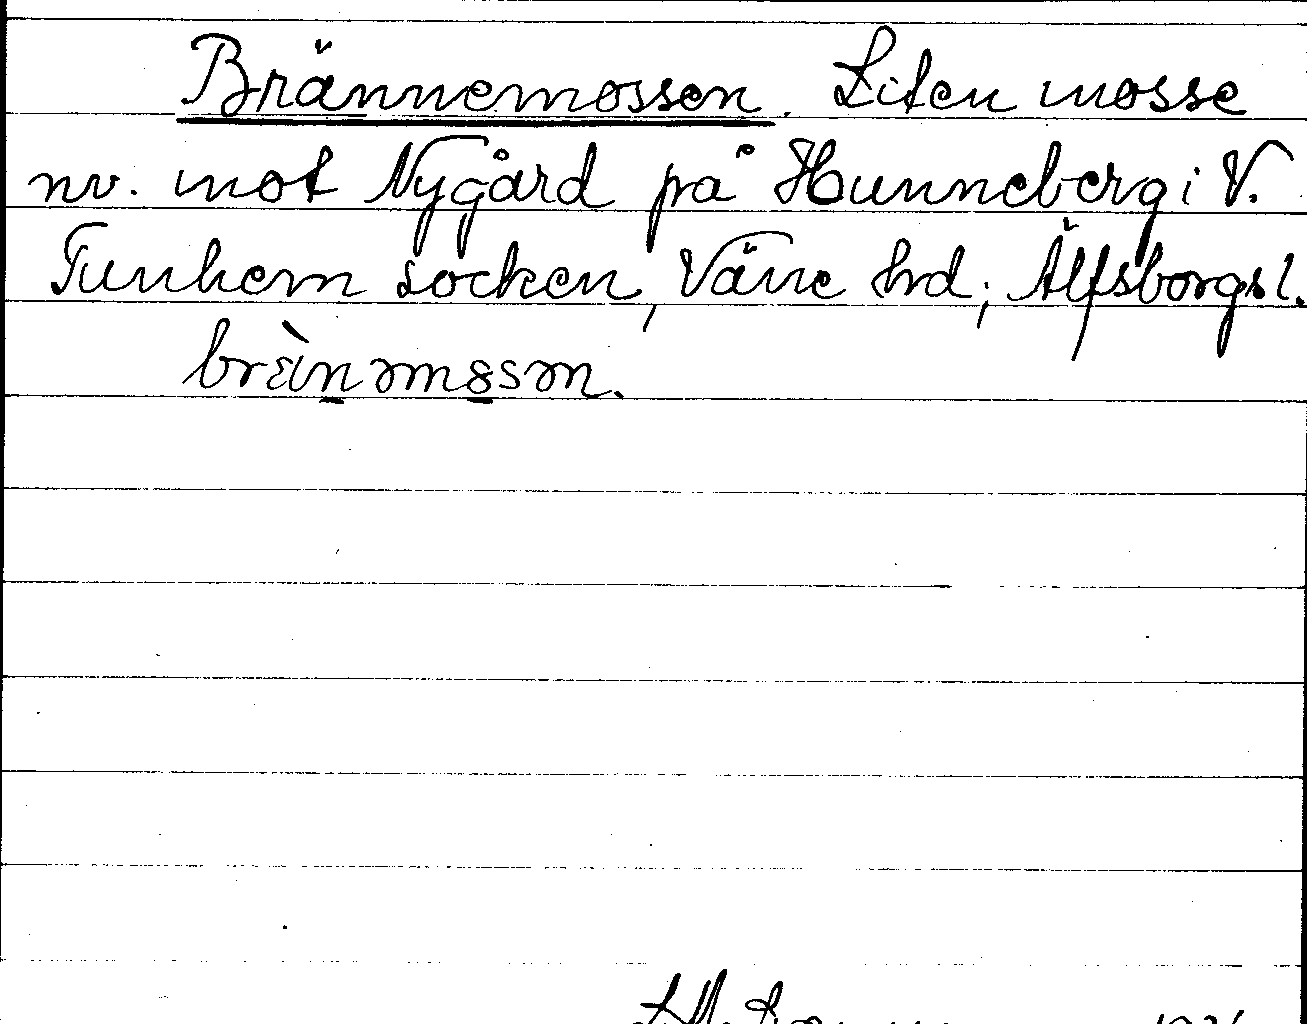 Brännemossen. Liten mosse
nv. mot Nygård på Hunneberg i V.
Tunhem socken, Väne hd; Älfsborgs l.
brän̲əmo̲sən.